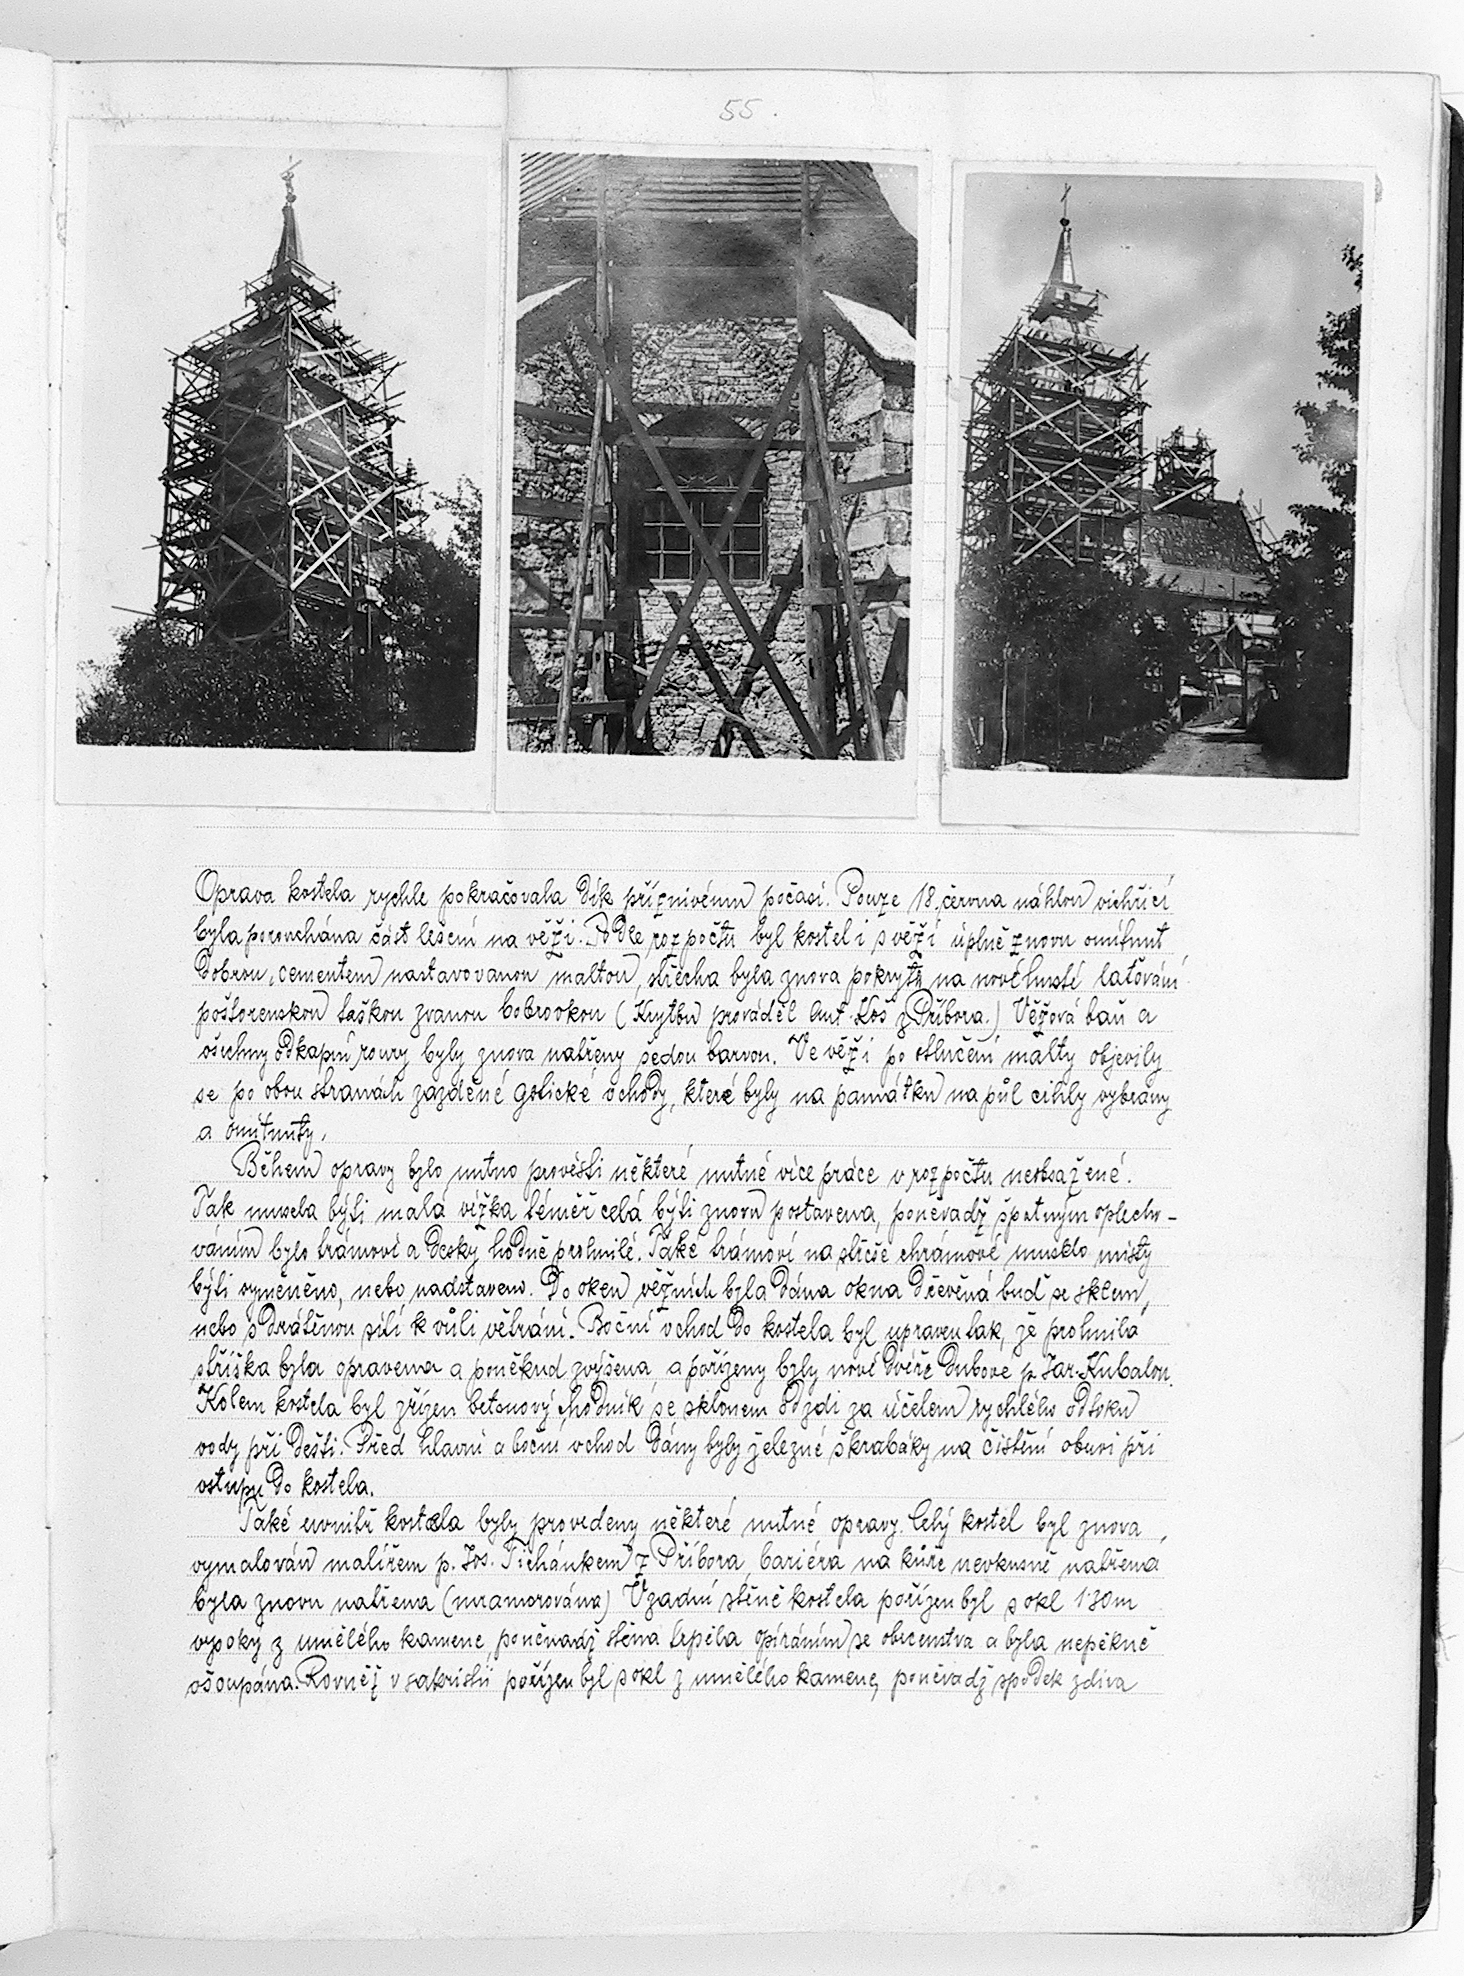 55.
Oprava kostela rychle pokračovala dík příznivému počasí. Pouze 18. června náhlou vichřicí
byla porouchána část lešení na věži. Podle rozpočtu byl kostel i s věží úplně znovu omítnut
dobrou, cementem nastavovanou maltou, střecha byla znova pokryta na nové husté laťování
poštorenskou taškou zvanou bobrovkou (Krytbu prováděl Ant. Koš z Příbora.) Věžová báň a
všechny odkapní roury byly znova natřeny šedou barvou. Ve věži po otlučení malty objevily
se po obou stranách zazděné gotické vchody, které byly na památku na půl cihly vybrány
a omítnuty.
Během opravy bylo nutno provésti některé nutné více práce v rozpočtu neobsažené.
Tak musela býti malá věžka téměř celá býti znovu postavena, poněvadž špatným oplecho-
váním bylo trámoví a desky hodně prohnilé. Také trámoví na střeše chrámové muselo místy
býti vyměněno, nebo nadstaveno. Do oken věžních byla dána okna dřevěná buď se sklem,
nebo s drátěnou sítí k vůli větrání. Boční vchod do kostela byl upraven tak, že prohnilá
stříška byla opravena a poněkud zvýšena, a pořízeny byly nové dvéře dubové p. Jar. Kubalou.
Kolem kostela byl zřízen betonový chodník se sklonem od zdi za účelem rychlého odtoku
vody při dešti. Před hlavní a boční vchod dány byly železné škrabáky na čistění obuvi při
vstupu do kostela.
Také uvnitř kostela byly provedeny některé nutné opravy. Celý kostel byl znova
vymalován malířem p. Jos. Tichánkem z Příbora, bariéra na kůře nevkusně natřena
byla znovu natřena (mramorována) V zadní stěně kostela pořízen byl sokl 130m
vysoký z umělého kamene, poněvadž stěna trpěla opíráním se obecenstva a byla nepěkně
ošoupána. Rovněž v sakristii pořízen byl sokl z umělého kamene, poněvadž spodek zdiva